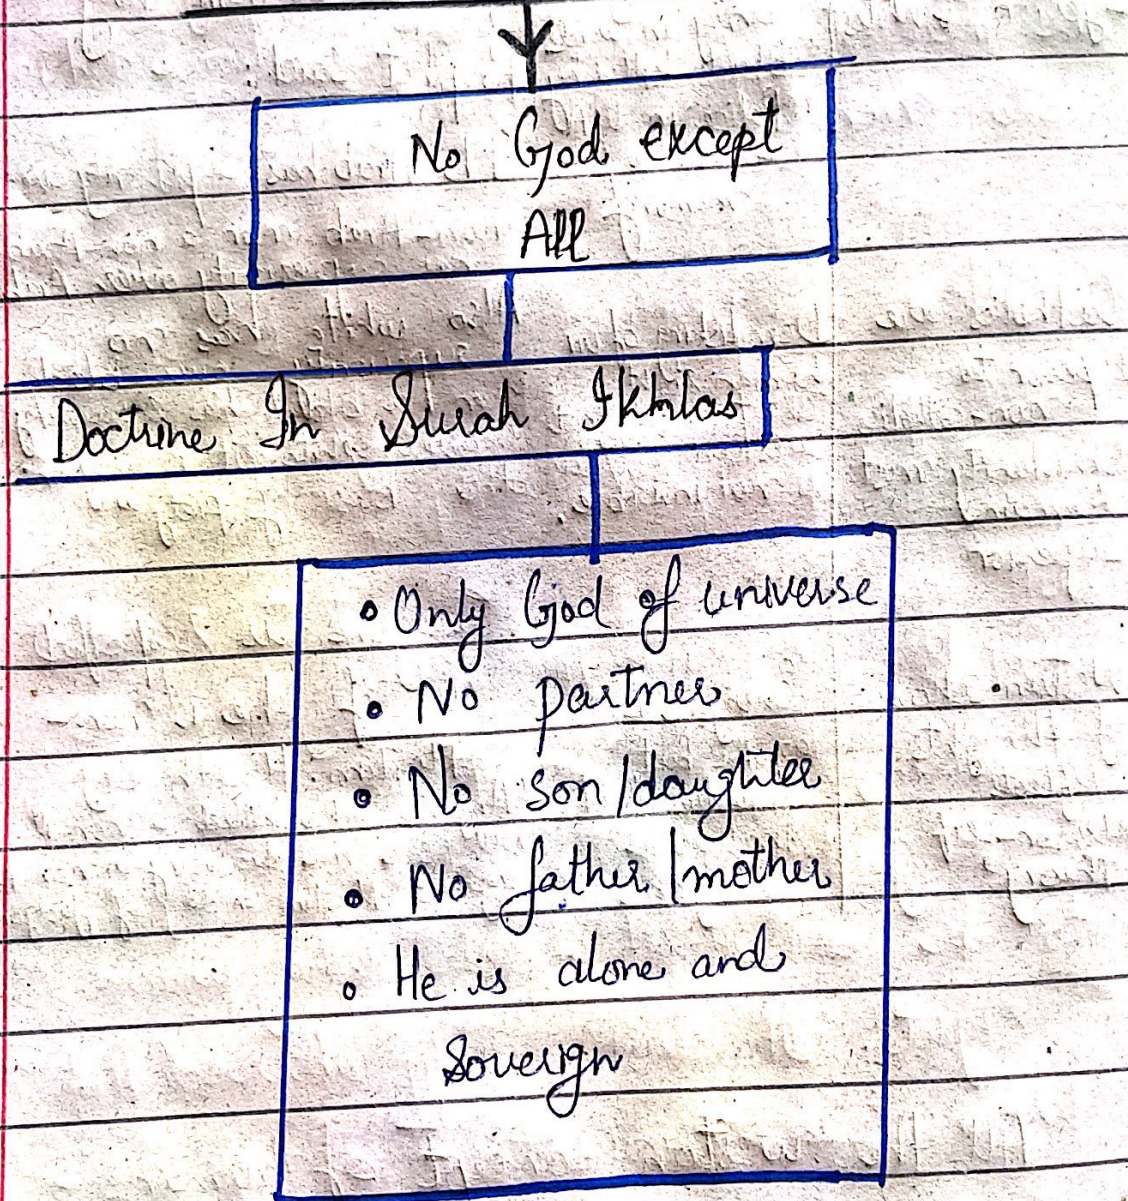 No God except
All
Doctrine In Surah Ikhlas
• Only God of universe
• No partner
• No son/daughter
• No father/mother
• He is alone and
Soverign